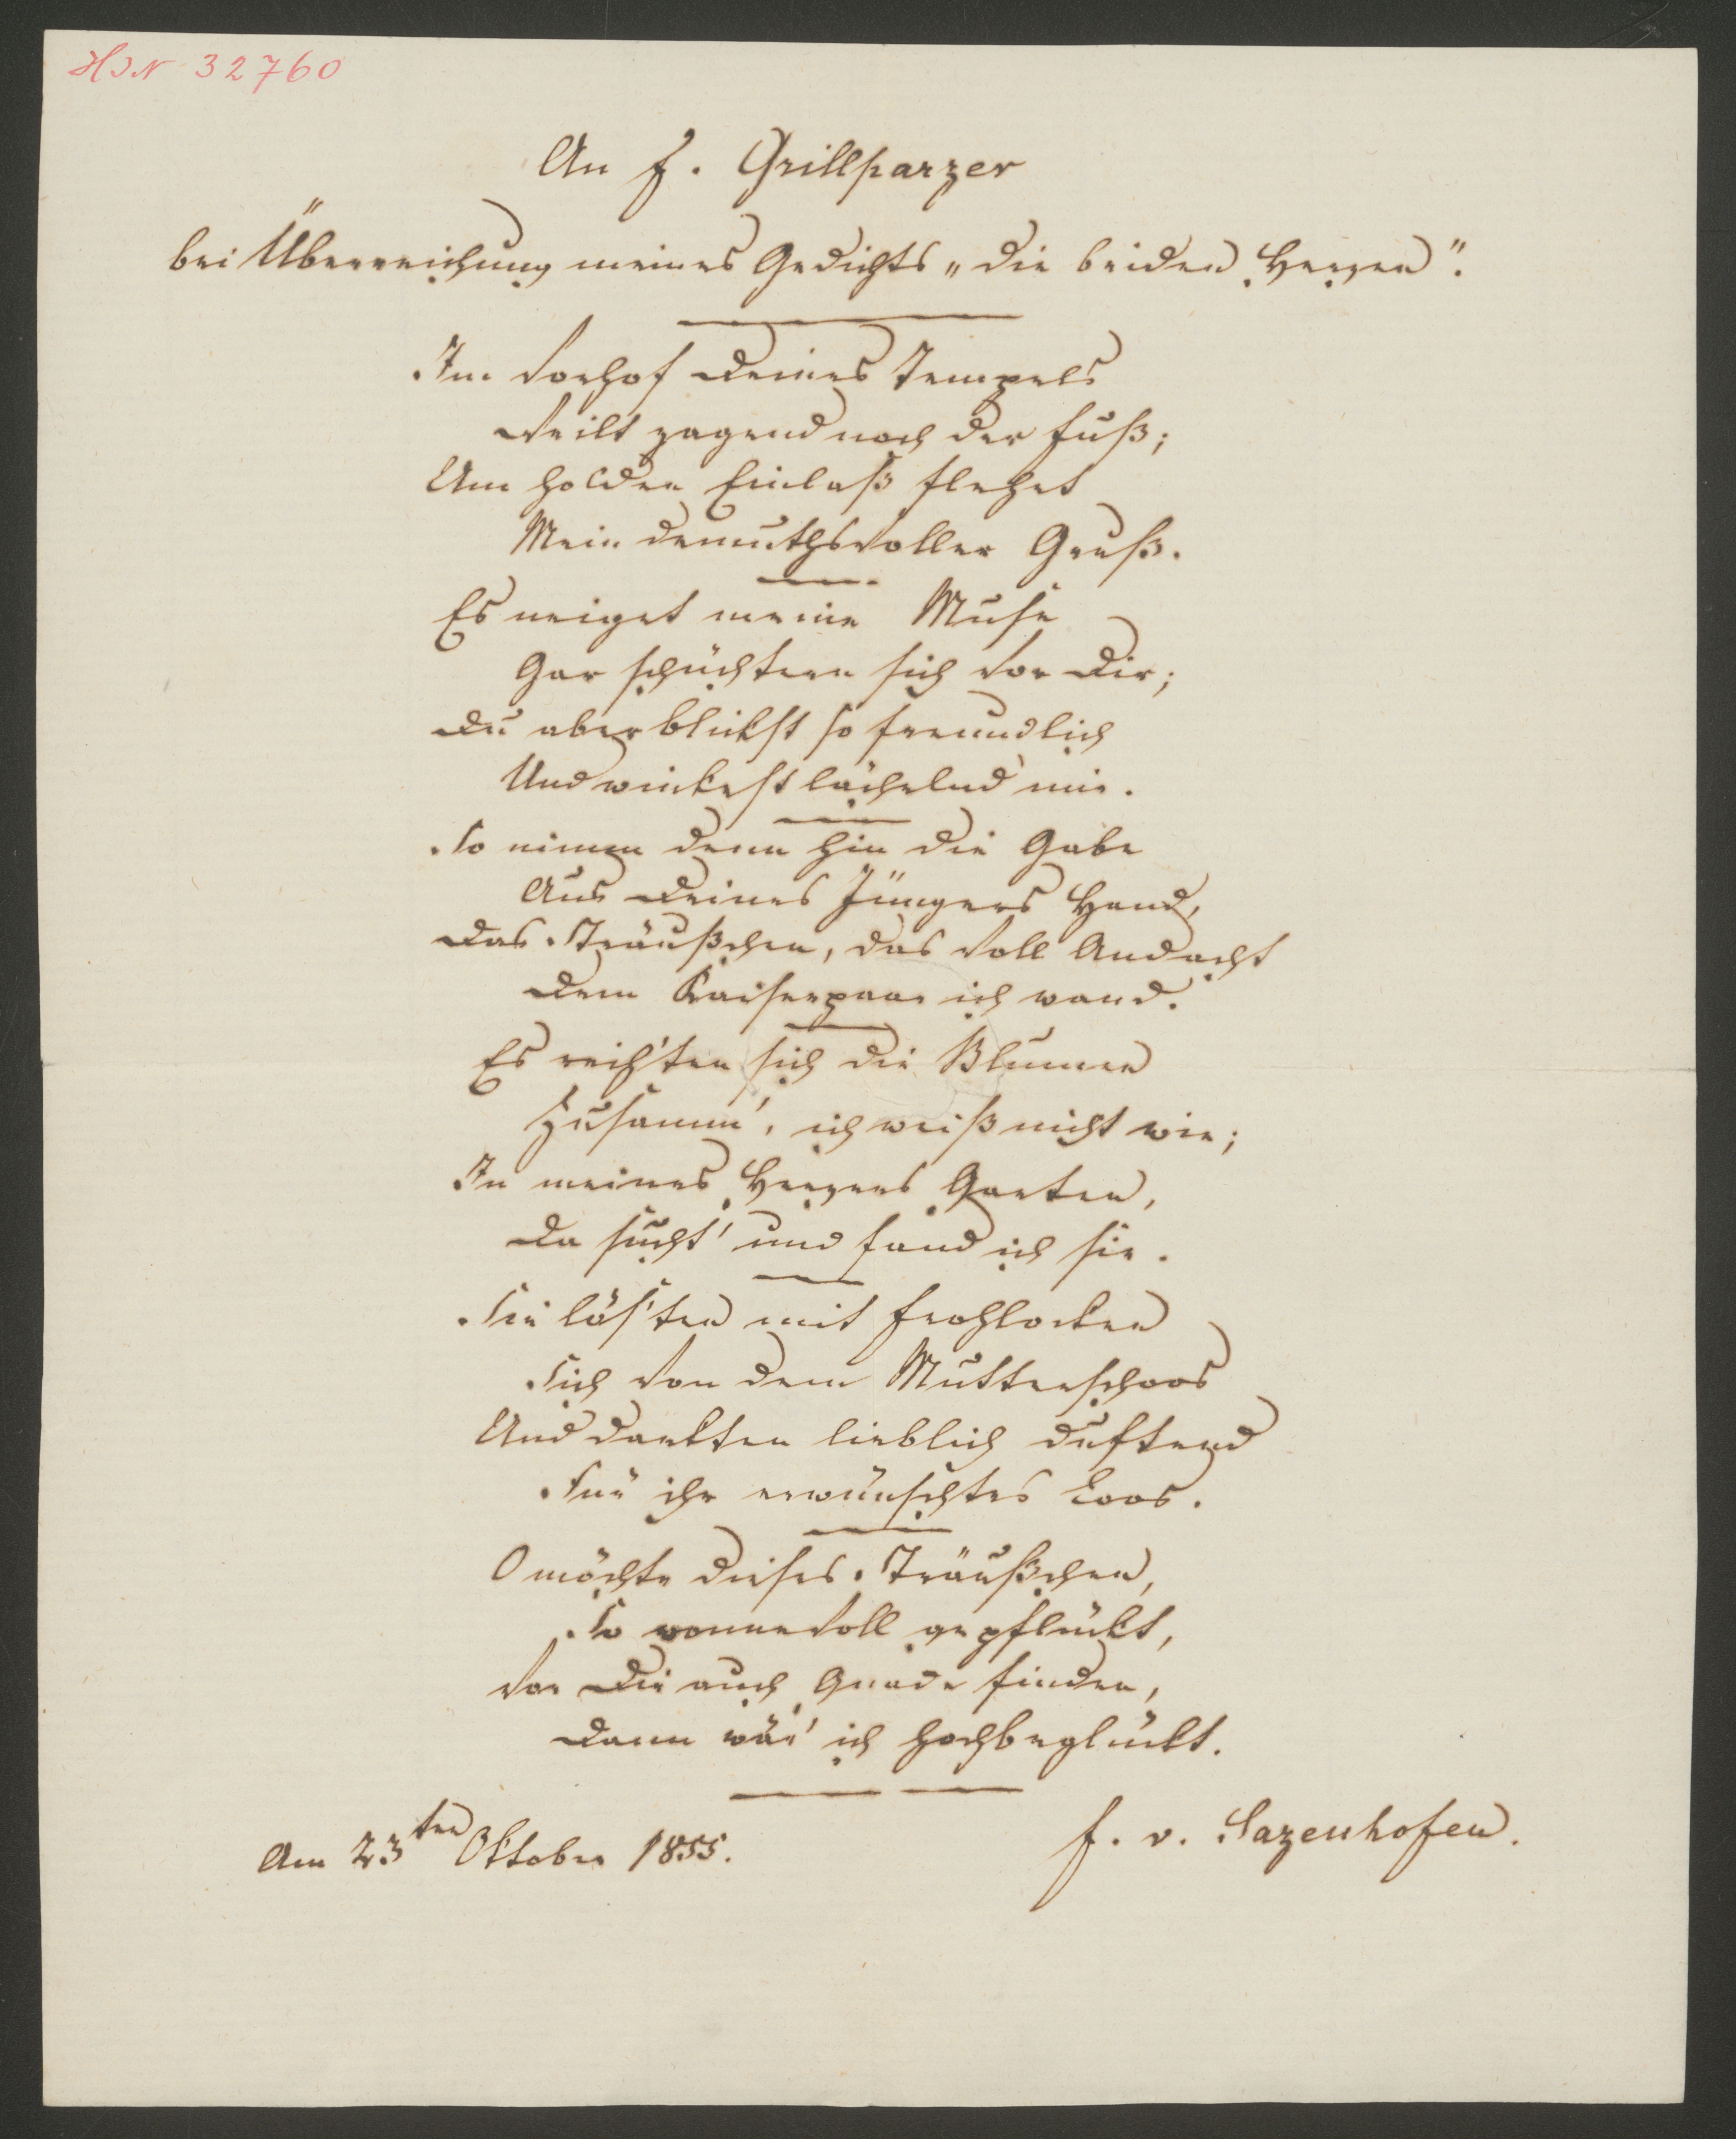 HIN 32760
An F. Grillparzer
bei Überreichung meines Gedichts „die beiden Herzen“.
Im Vorhof Deines Tempels
Weilt zagend noch der Fuß;
Um holden Einlaß flehet
Mein demuthsvoller Gruß.
Es neiget meine Muse
Gar schüchtern sich vor Dir;
Du aber blickst so freundlich
Und winkest lächelnd mir.
So nimm denn hin die Gabe
Aus Deines Jüngers Hand,
Das Sträußchen, das voll Andacht
Dem Kaiserpaar ich wand.
Es reih'ten sich die Blumen
Zusamm', ich weiß nicht wie;
In meines Herzens Garten,
Da sucht' und fand ich sie.
Sie lös'ten mit Frohlocken
Sich von dem Mutterschoos
Und dankten lieblich duftend
Für ihr erwünschtes Loos.
O möchte dieses Sträußchen,
So wonnevoll gepflückt,
Vor Dir auch Gnade finden,
Dann wär' ich hochbeglückt.
Am 23ten Oktober 1855.
F. v. Sazenhofen.